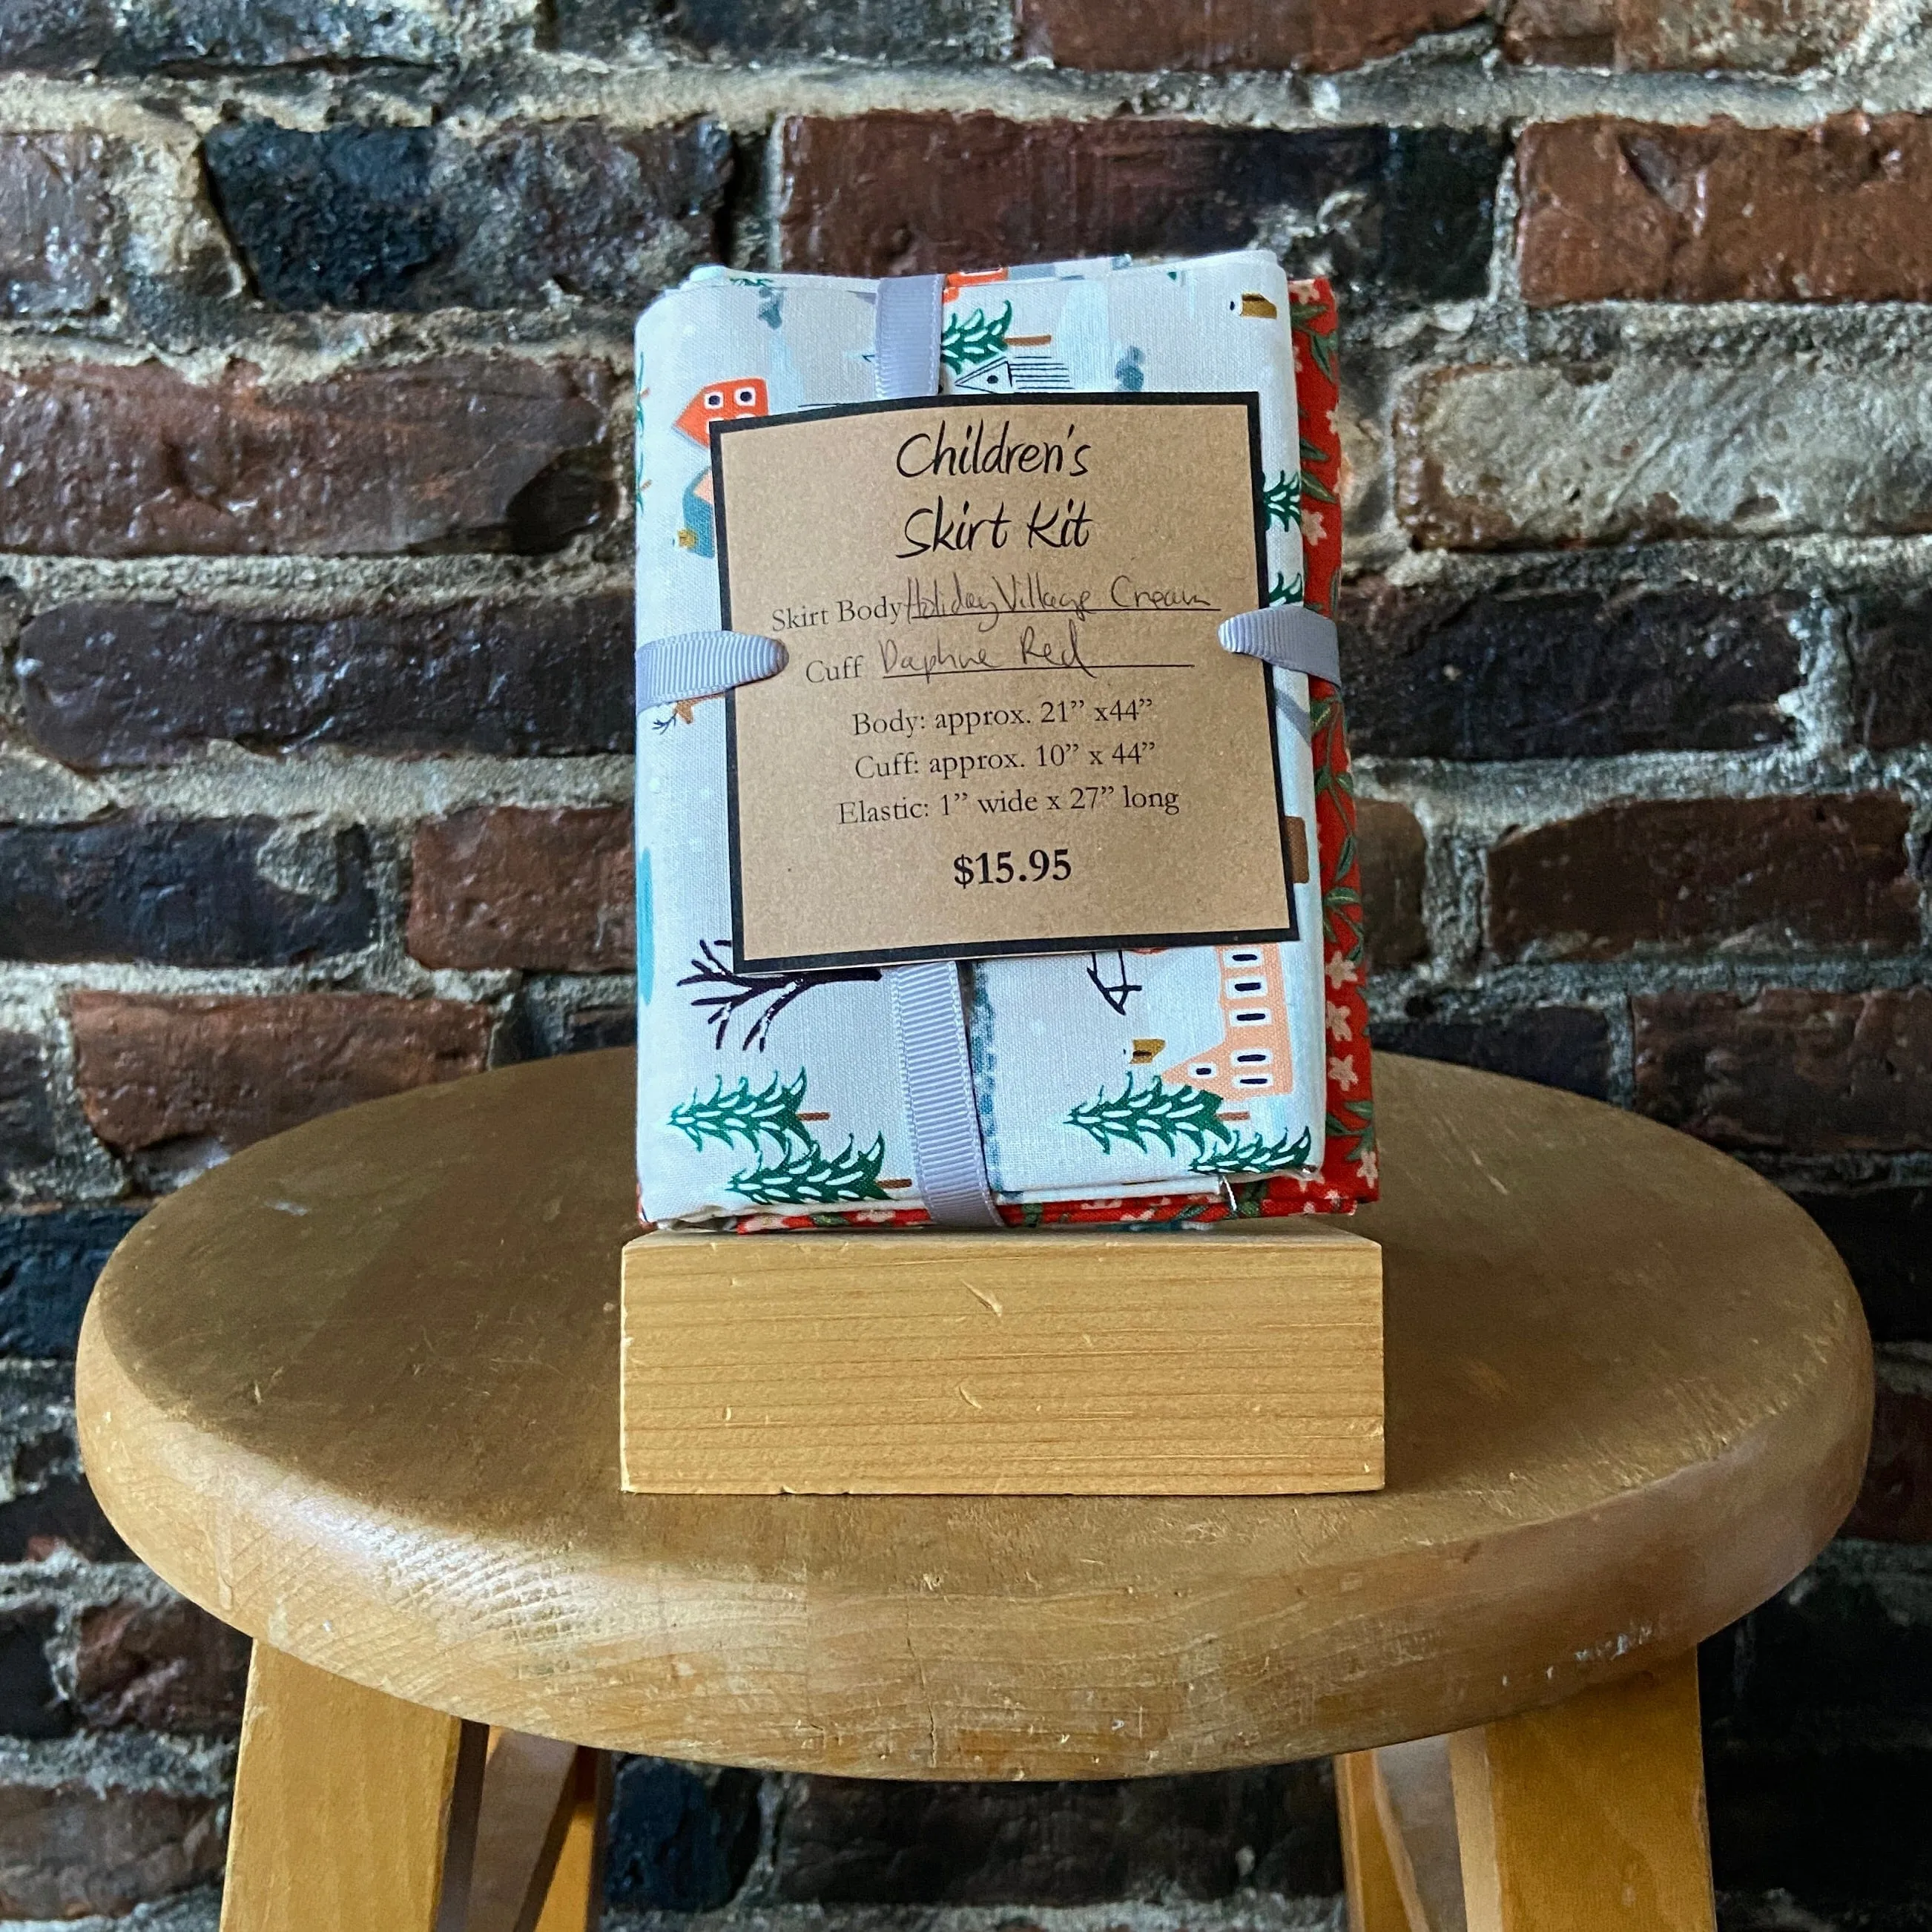 Children's
Skirt Kit
Skirt Body Holiday Village Cream
Cuff Daphne Red
Body: approx. 21” x44”
Cuff: approx. 10” x 44”
Elastic: 1” wide x 27” long
$15.95